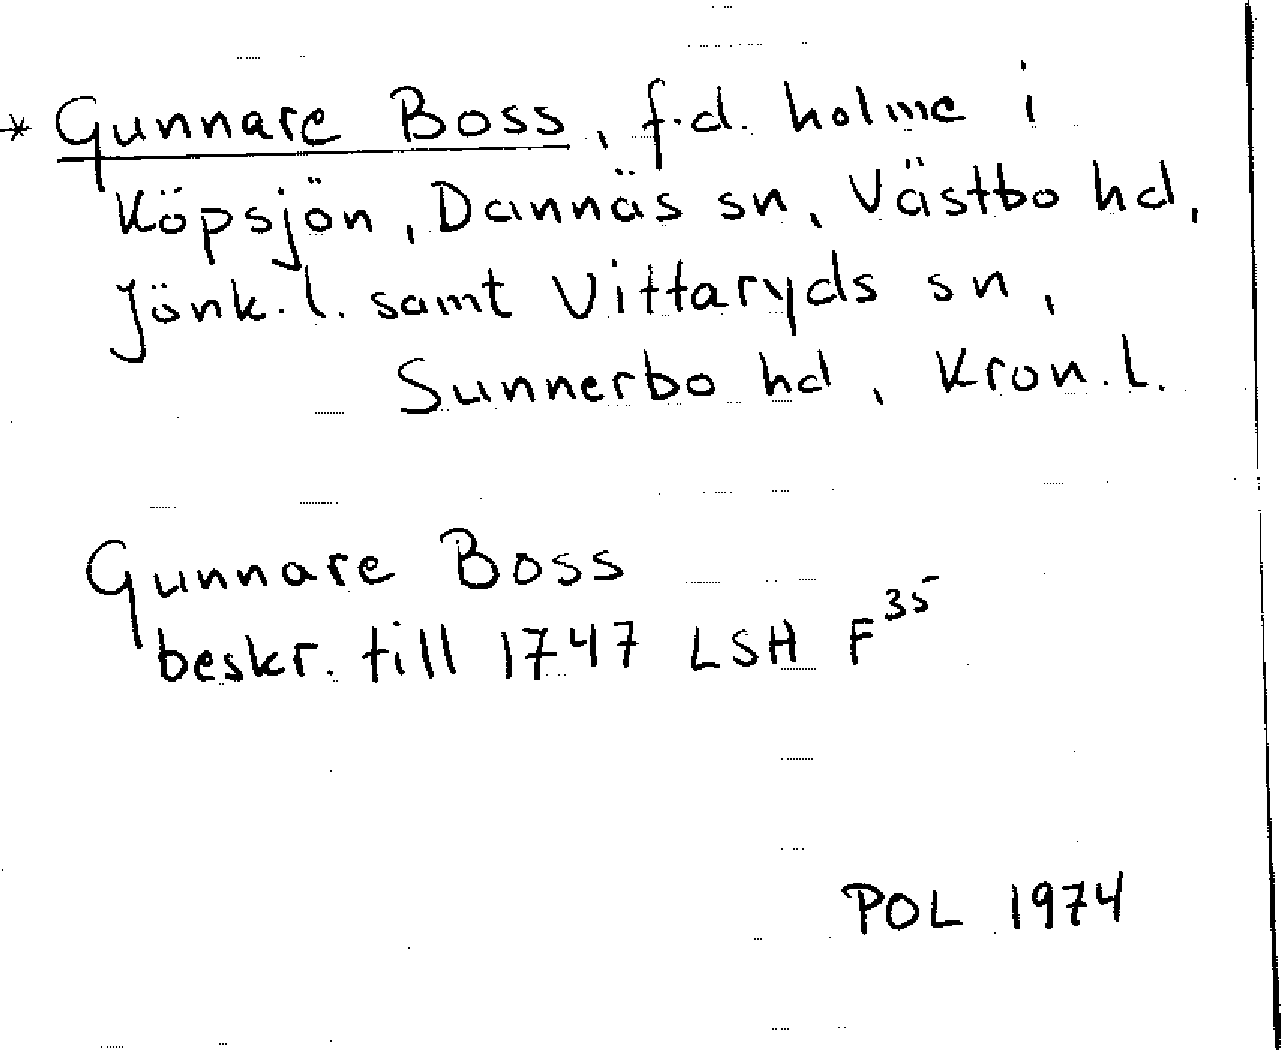 * Gunnare Boss, f.d. holme i
Köpsjön, Dannäs sn, Västbo hd,
Jönk. l. samt Vittaryds sn,
Sunnerbo hd, Kron. l.
Gunnare Boss
beskr. till 1747 LSH F35
POL 1974